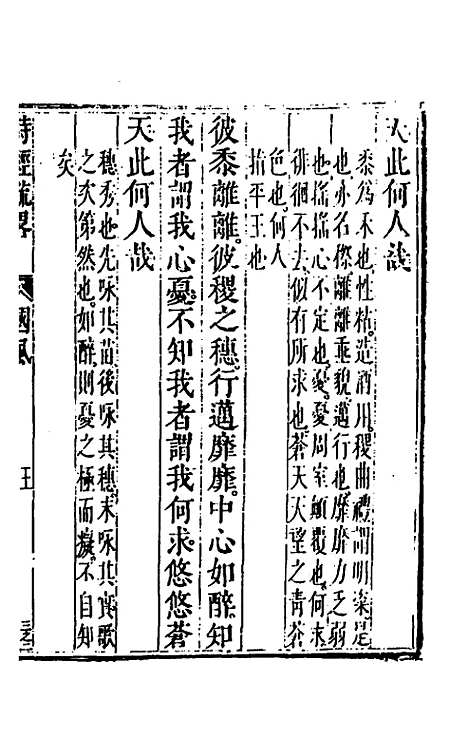 天此何人哉
黍爲禾也性粘造酒用稷曲禮謂明粢是
也亦名穄離離垂貌邁行也靡靡力乏弱
也搖搖心不定也憂憂周室顛覆也何求
徘徊不去似有所求也蒼天天望之青蒼
色也何人
指平王也
彼黍離離彼稷之穗行邁靡靡中心如醉知
我者謂我心憂不知我者謂我何求悠悠蒼
天此何人哉
穗秀也先咏其苗後咏其穗末咏其實歌
之次第然也如醉則憂之極而癡不自知
矣
詩經疏畧 國風 王